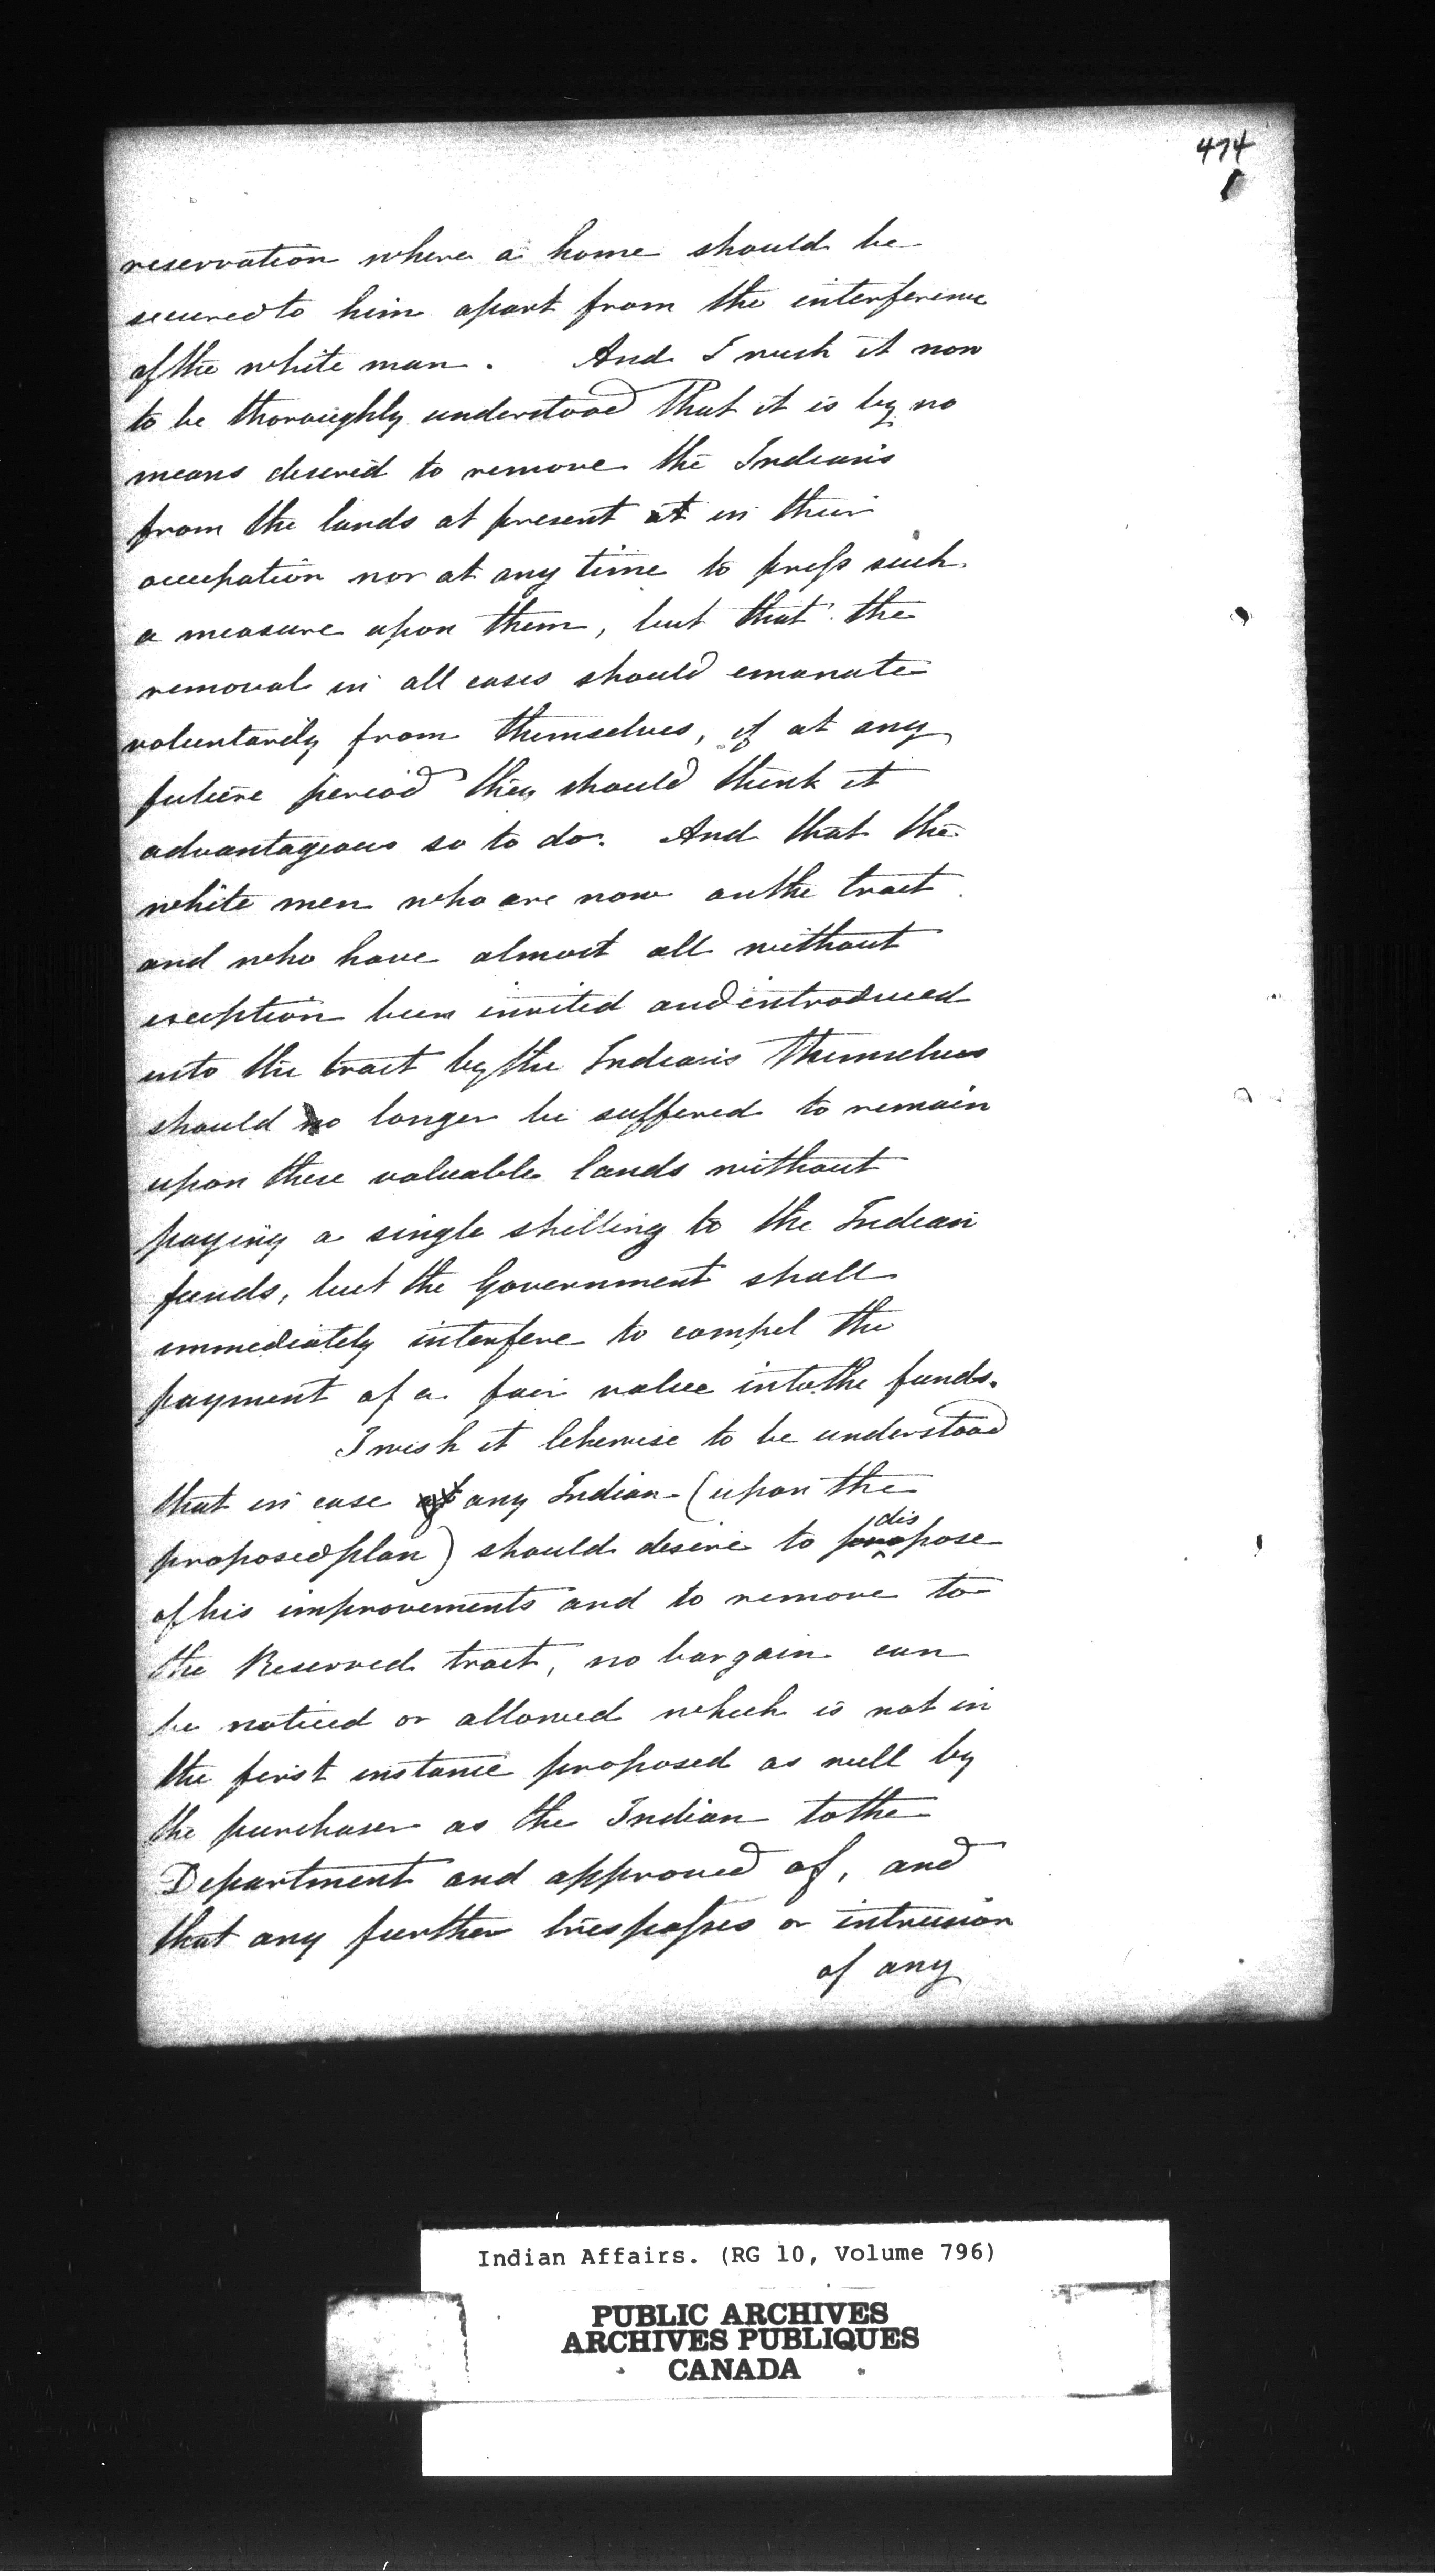 474
reservation where a home should be
secured to him apart from the interference
of the white man. And I wish it now
to be thoroughly understood that it is by no
means desired to remove the Indians
from the lands at present at in their
occupation nor at any time to press such
a measure upon them, but that the
removal in all cases should emanate
voluntarily from themselves, if at any
future period they should think it
advantageous so to do. And that the
white men who are now on the tract
and who have almost all without
exception been invited and introduced
into the tract by the Indians themselves
should no longer be suffered to remain
upon these valuable lands without
paying a single shilling to the Indian
funds, but the Government shall
immediately interfere to compel the
payment of a fair value into the funds.
I wish it likewise to be understood
that in case any Indian (upon the
proposed plan) should desire to dispose
of his improvements and to remove to
the Reserved tract, no bargain can
be noticed or allowed which is not in
the first instance proposed as well by
the purchaser as the Indian to the
Department and approved of, and
that any further trespasses or intrusion
of any
Indian Affairs. (RG 10, Volume 796)
PUBLIC ARCHIVES
ARCHIVES PUBLIQUES
CANADA